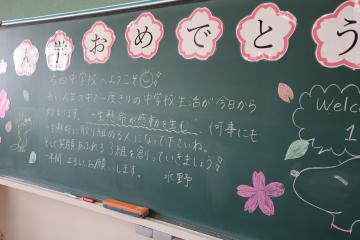 入学おめでとう
中学校へようこそ
長い人生の中で一度きりの中学校生活が今日から
始まります。一生懸命が感動を生む。何事にも
一生懸命に取り組める人になって下さいね。
そして笑顔あふれる3組を創っていきましょう！
一年間、よろしくお願いします。 水野
Welco
1